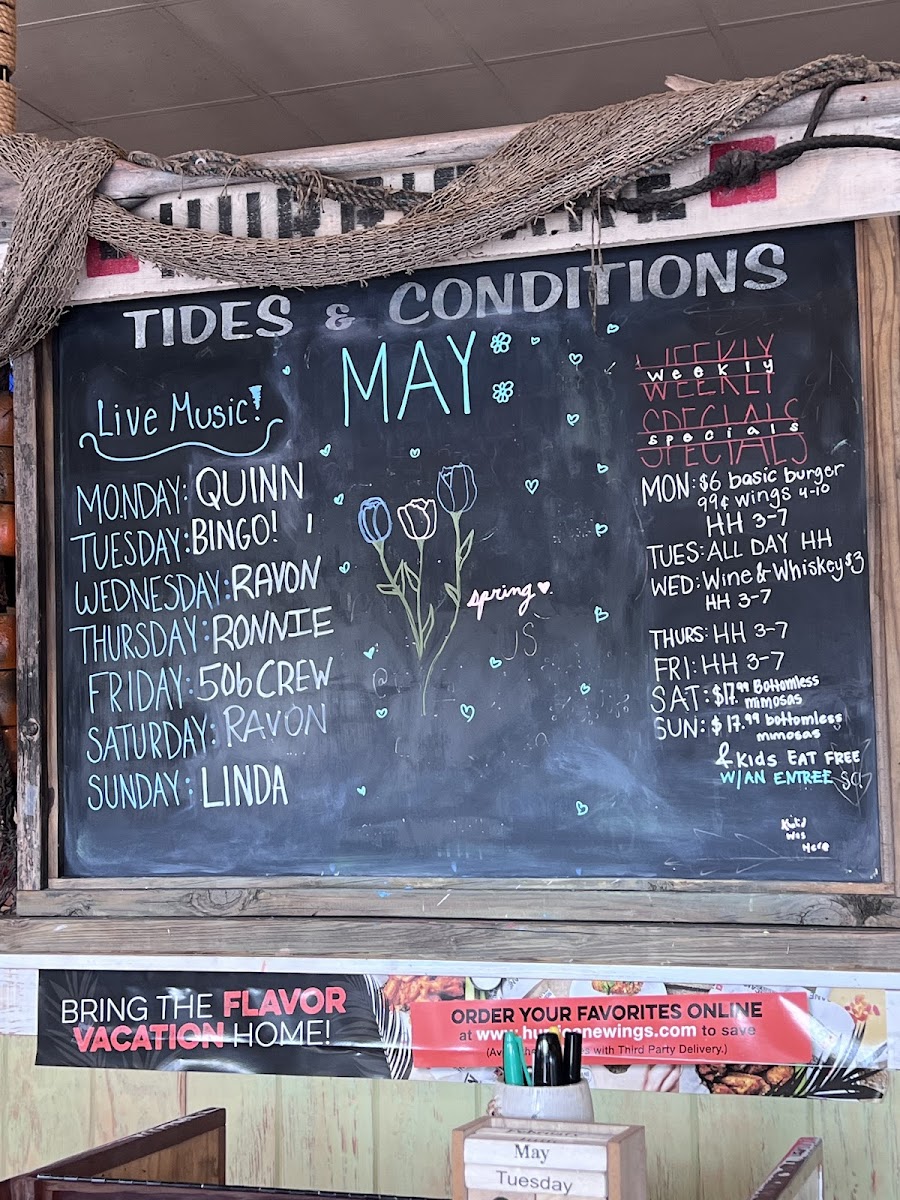 TIDES & CONDITIONS
MAY
Live Music!
MONDAY: QUINN
TUESDAY: BINGO!
WEDNESDAY: RAVON
THURSDAY: RONNIE
FRIDAY: 506 CREW
SATURDAY: RAVON
SUNDAY: LINDA
spring
JS
WEEKLY
weekly
WEEKLY
SPECIALS
specials
SPECIALS
MON: $6 basic burger
99¢ wings 4-10
HH 3-7
TUES: ALL DAY HH
WED: Wine & Whiskey $3
HH 3-7
THURS: HH 3-7
FRI: HH 3-7
SAT: $17.99 Bottomless
mimosas
SUN: $17.99 bottomless
mimosas
& Kids EAT FREE
W/AN ENTREE
was
Here
BRING THE FLAVOR
VACATION HOME!
ORDER YOUR FAVORITES ONLINE
at www.hurricanewings.com to save
with Third Party Delivery.)
February
May
Tuesday